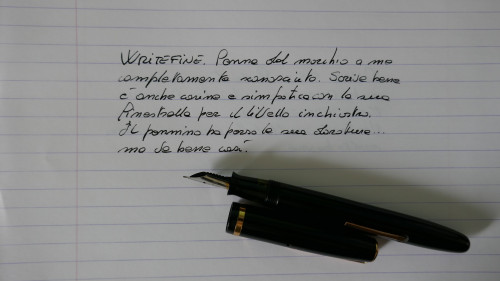 WRITEFINE. Penna dal marchio a me
completamente sconosciuto. Scrive bene
è anche carina e simpatica con la sua
finestrella per il livello inchiostro.
Il pennino ha perso la sua doratura...
ma va bene così.